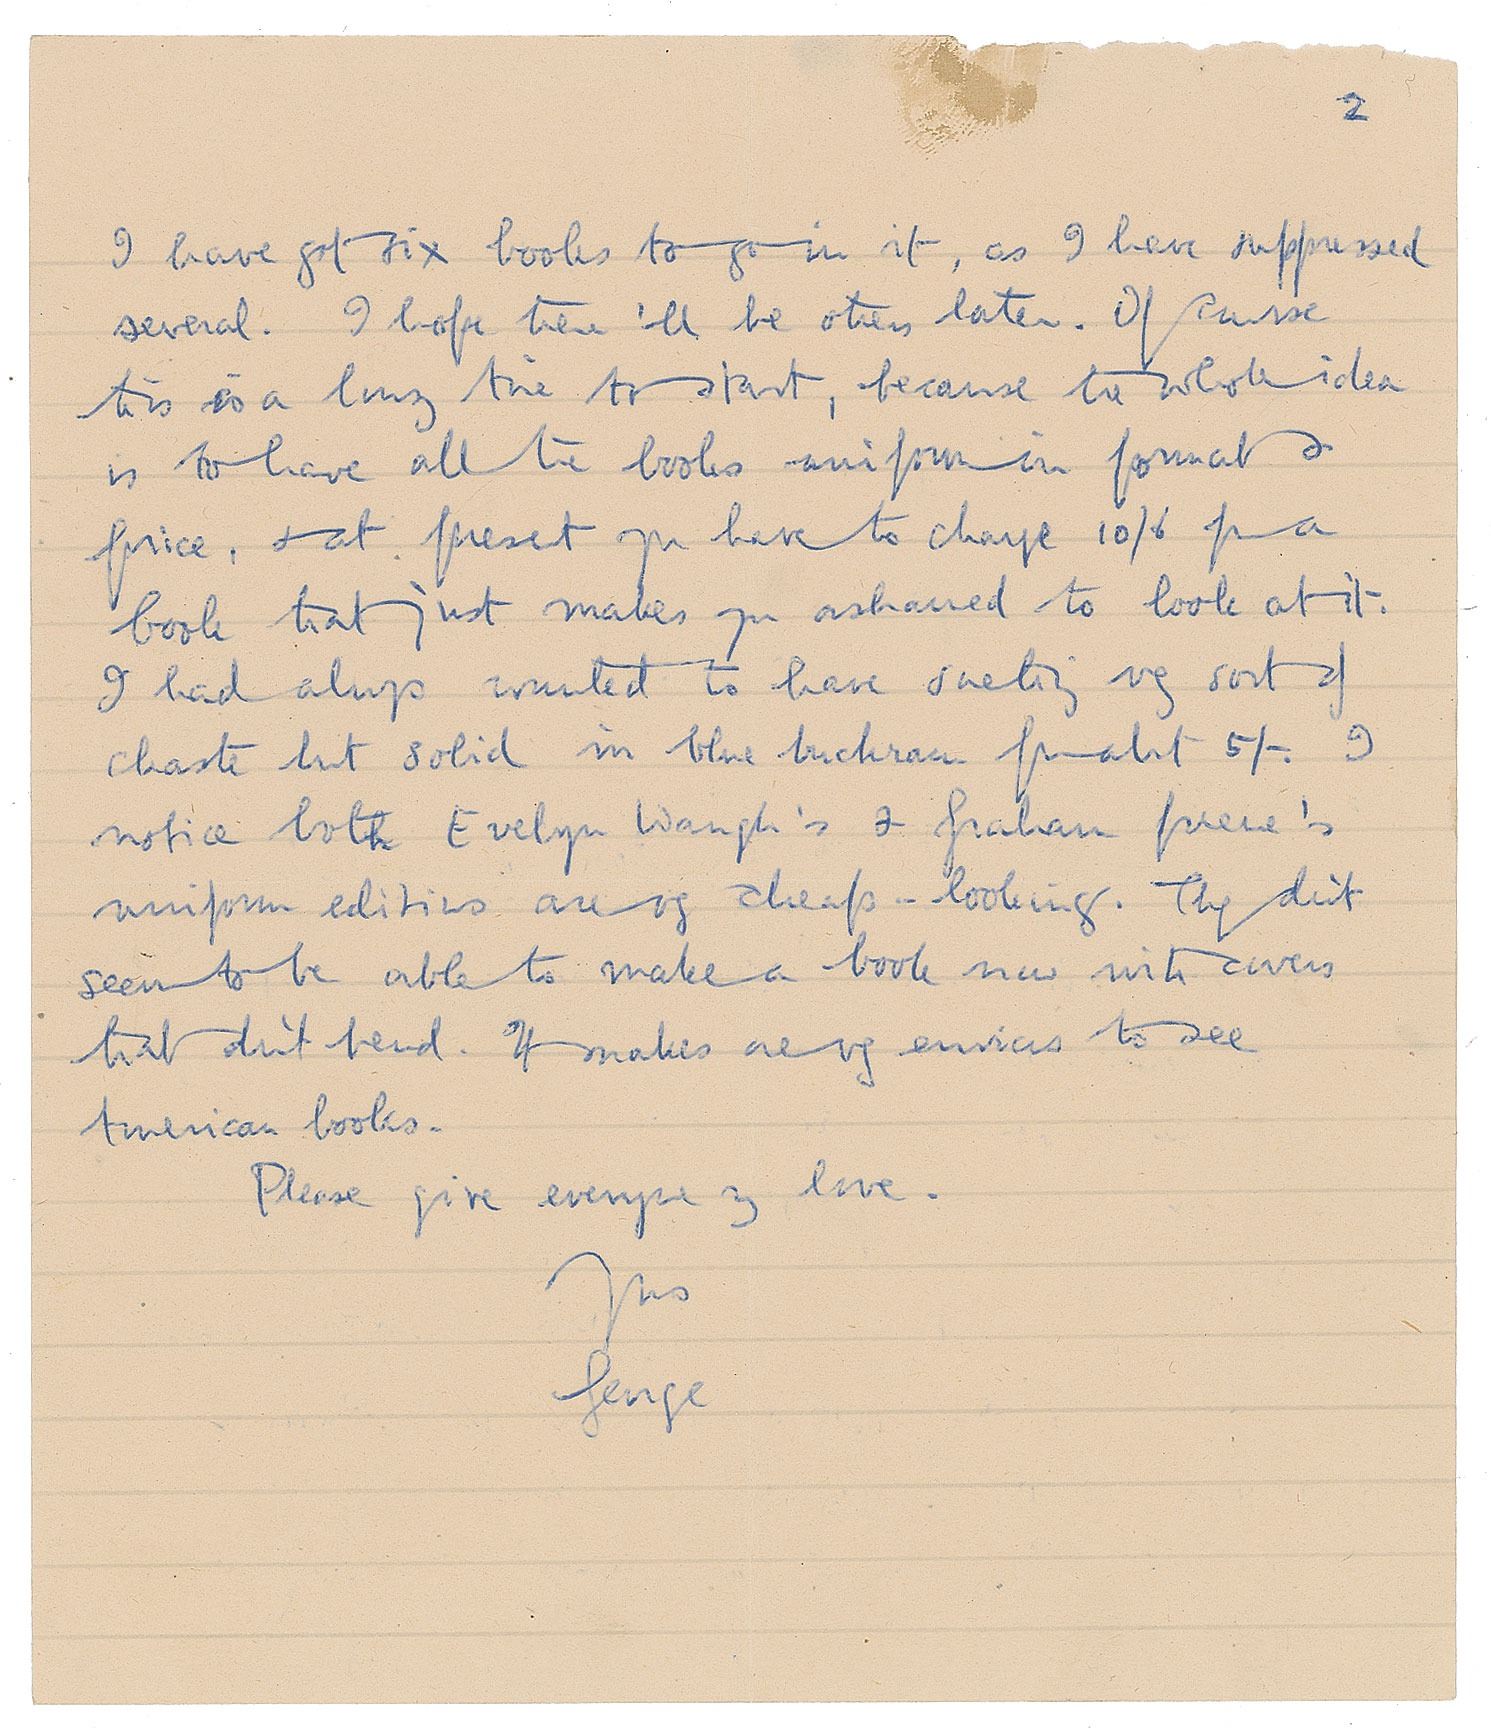 2
I have got six books to go in it, as I have suppressed
several. I hope there'll be others later. Of course
this is a long time to start, because the whole idea
is to have all the books uniform in format &
price, & at present you have to charge 10/6 for a
book that just makes you ashamed to look at it.
I had always wanted to have something very sort of
chaste but solid in blue buckram for about 5/-. I
notice both Evelyn Waugh's & Graham Greene's
uniform editions are very cheap-looking. They don't
seem to be able to make a book now with covers
that don't bend. It makes one very envious to see
American books.
Please give everyone my love.
Yours
George